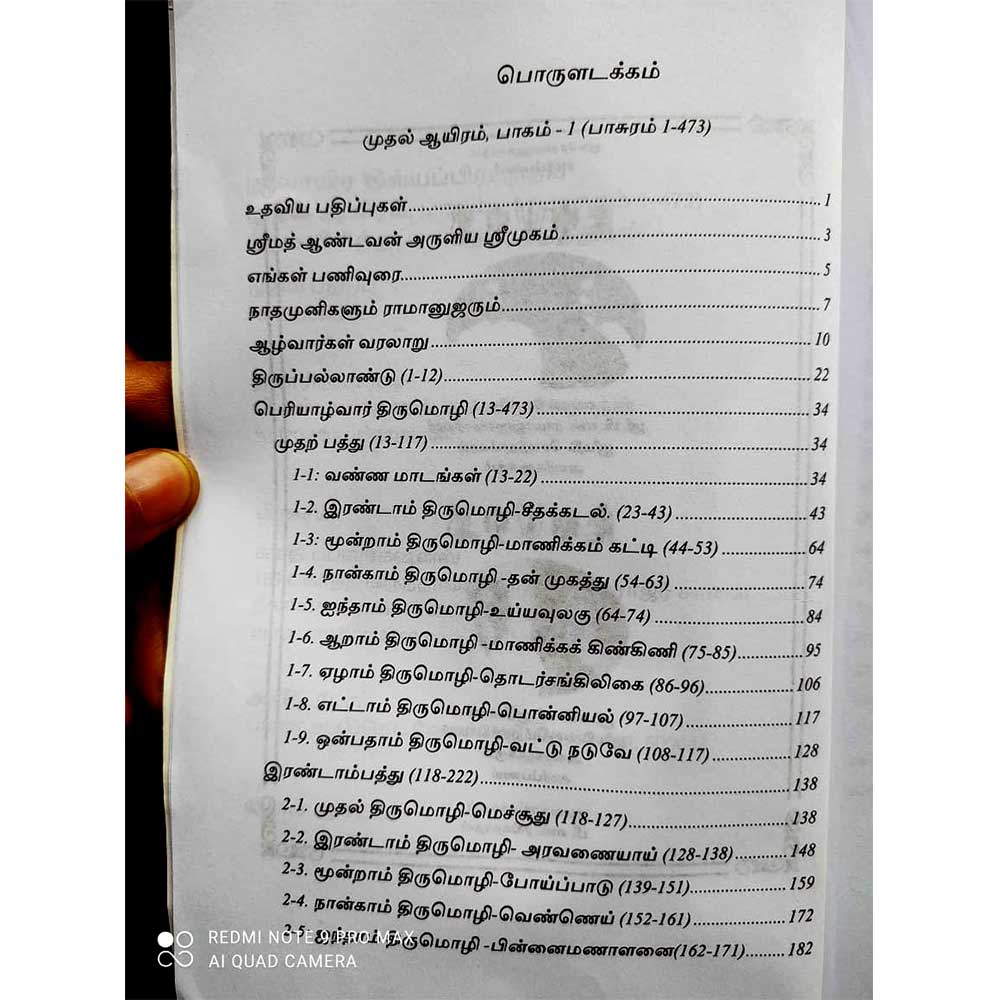 பொருளடக்கம்
முதல் ஆயிரம், பாகம் - 1 (பாசுரம் 1-473)
உதவிய பதிப்புகள்..........1
ஸ்ரீமத் ஆண்டவன் அருளிய ஸ்ரீமுகம்..........3
எங்கள் பணிவுரை..........5
நாதமுனிகளும் ராமானுஜரும்..........7
ஆழ்வார்கள் வரலாறு..........10
திருப்பல்லாண்டு (1-12)..........22
பெரியாழ்வார் திருமொழி (13-473)..........34
முதற் பத்து (13-117)..........34
1-1: வண்ண மாடங்கள் (13-22)..........34
1-2. இரண்டாம் திருமொழி-சீதக்கடல். (23-43)..........43
1-3: மூன்றாம் திருமொழி-மாணிக்கம் கட்டி (44-53)..........64
1-4. நான்காம் திருமொழி -தன் முகத்து (54-63)..........74
1-5. ஐந்தாம் திருமொழி-உய்யவுலகு (64-74)..........84
1-6. ஆறாம் திருமொழி -மாணிக்கக் கிண்கிணி (75-85)..........95
1-7. ஏழாம் திருமொழி-தொடர்சங்கிலிகை (86-96)..........106
1-8. எட்டாம் திருமொழி-பொன்னியல் (97-107)..........117
1-9. ஒன்பதாம் திருமொழி-வட்டு நடுவே (108-117)..........128
இரண்டாம்பத்து (118-222)..........138
2-1. முதல் திருமொழி-மெச்சூது (118-127)..........138
2-2. இரண்டாம் திருமொழி- அரவணையாய் (128-138)..........148
2-3. மூன்றாம் திருமொழி-போய்ப்பாடு (139-151)..........159
2-4. நான்காம் திருமொழி-வெண்ணெய் (152-161)..........172
2-5. ஐந்தாம் திருமொழி -பின்னைமணாளனை(162-171)..........182
REDMI NOTE 9 PRO MAX
AI QUAD CAMERA